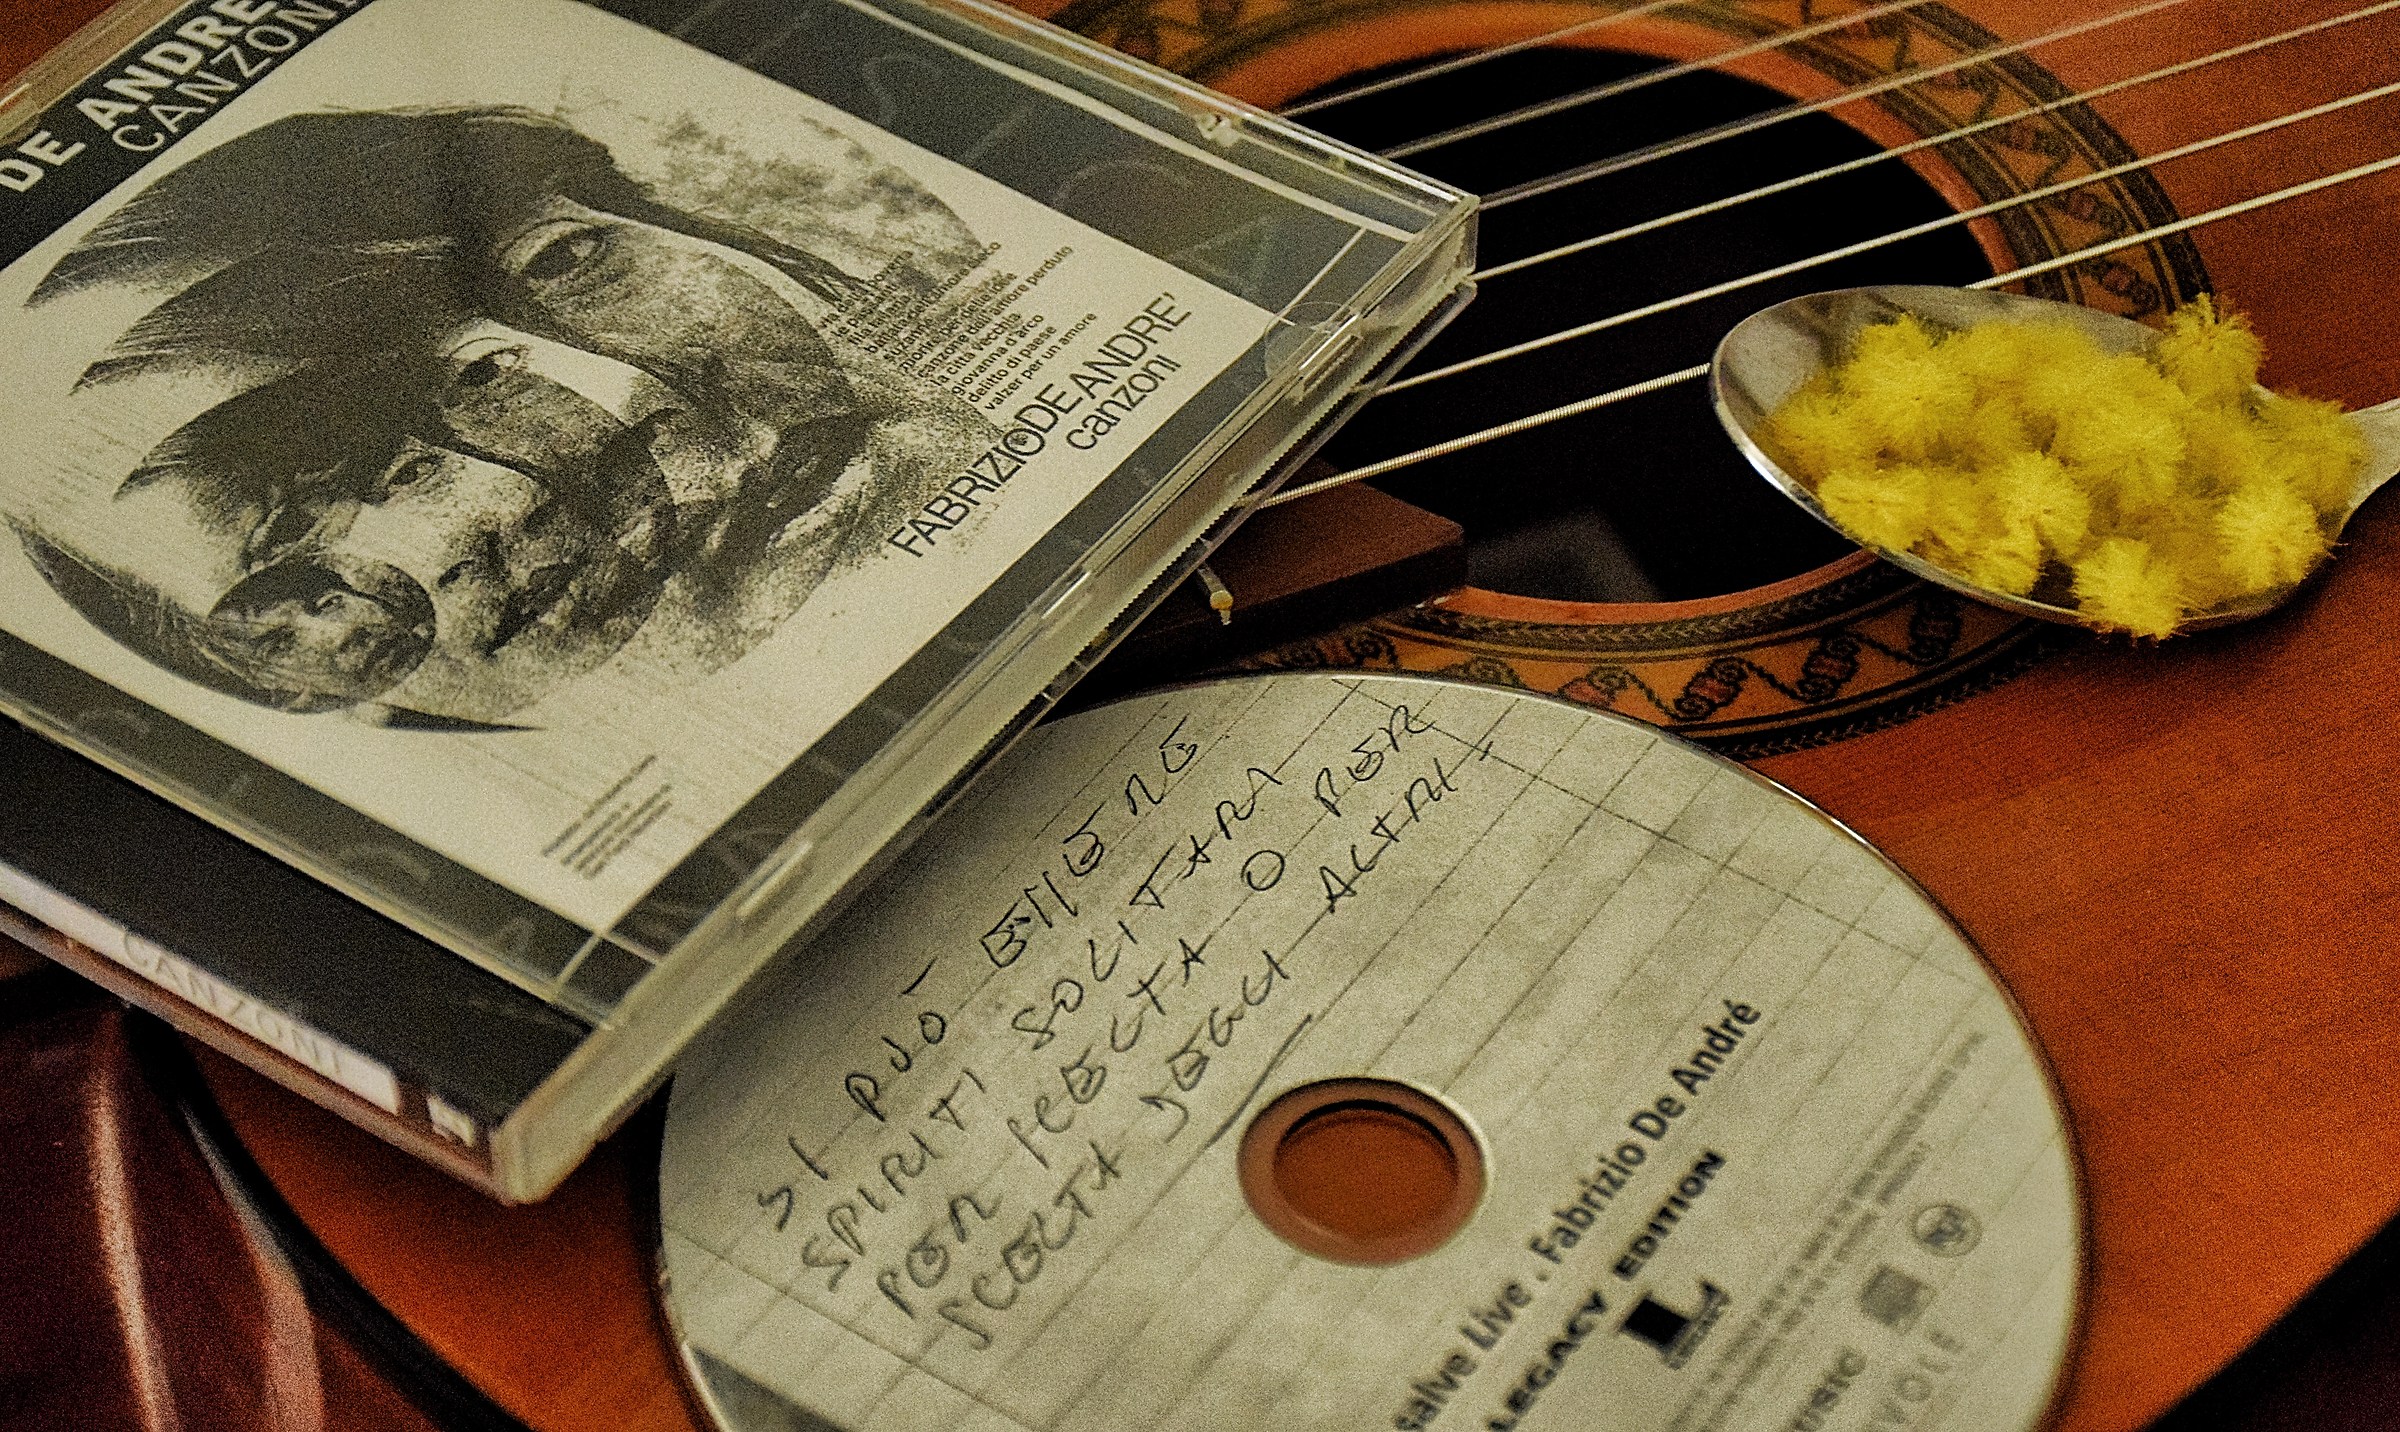 DE ANDRE
CANZONI
via della povertà
le passanti
fila la lana
ballata dell'amore cieco
suzanne
morire per delle idee
canzone dell'amore perduto
la città vecchia
giovanna d'arco
delitto di paese
valzer per un amore
FABRIZIO DE ANDRE'
canzoni
CANZONI
SI PUÒ ESSERE
SPIRITI SOLITARI
PER SCELTA O PER
SCELTA DEGLI ALTRI
salve Live . Fabrizio De André
LEGACY EDITION